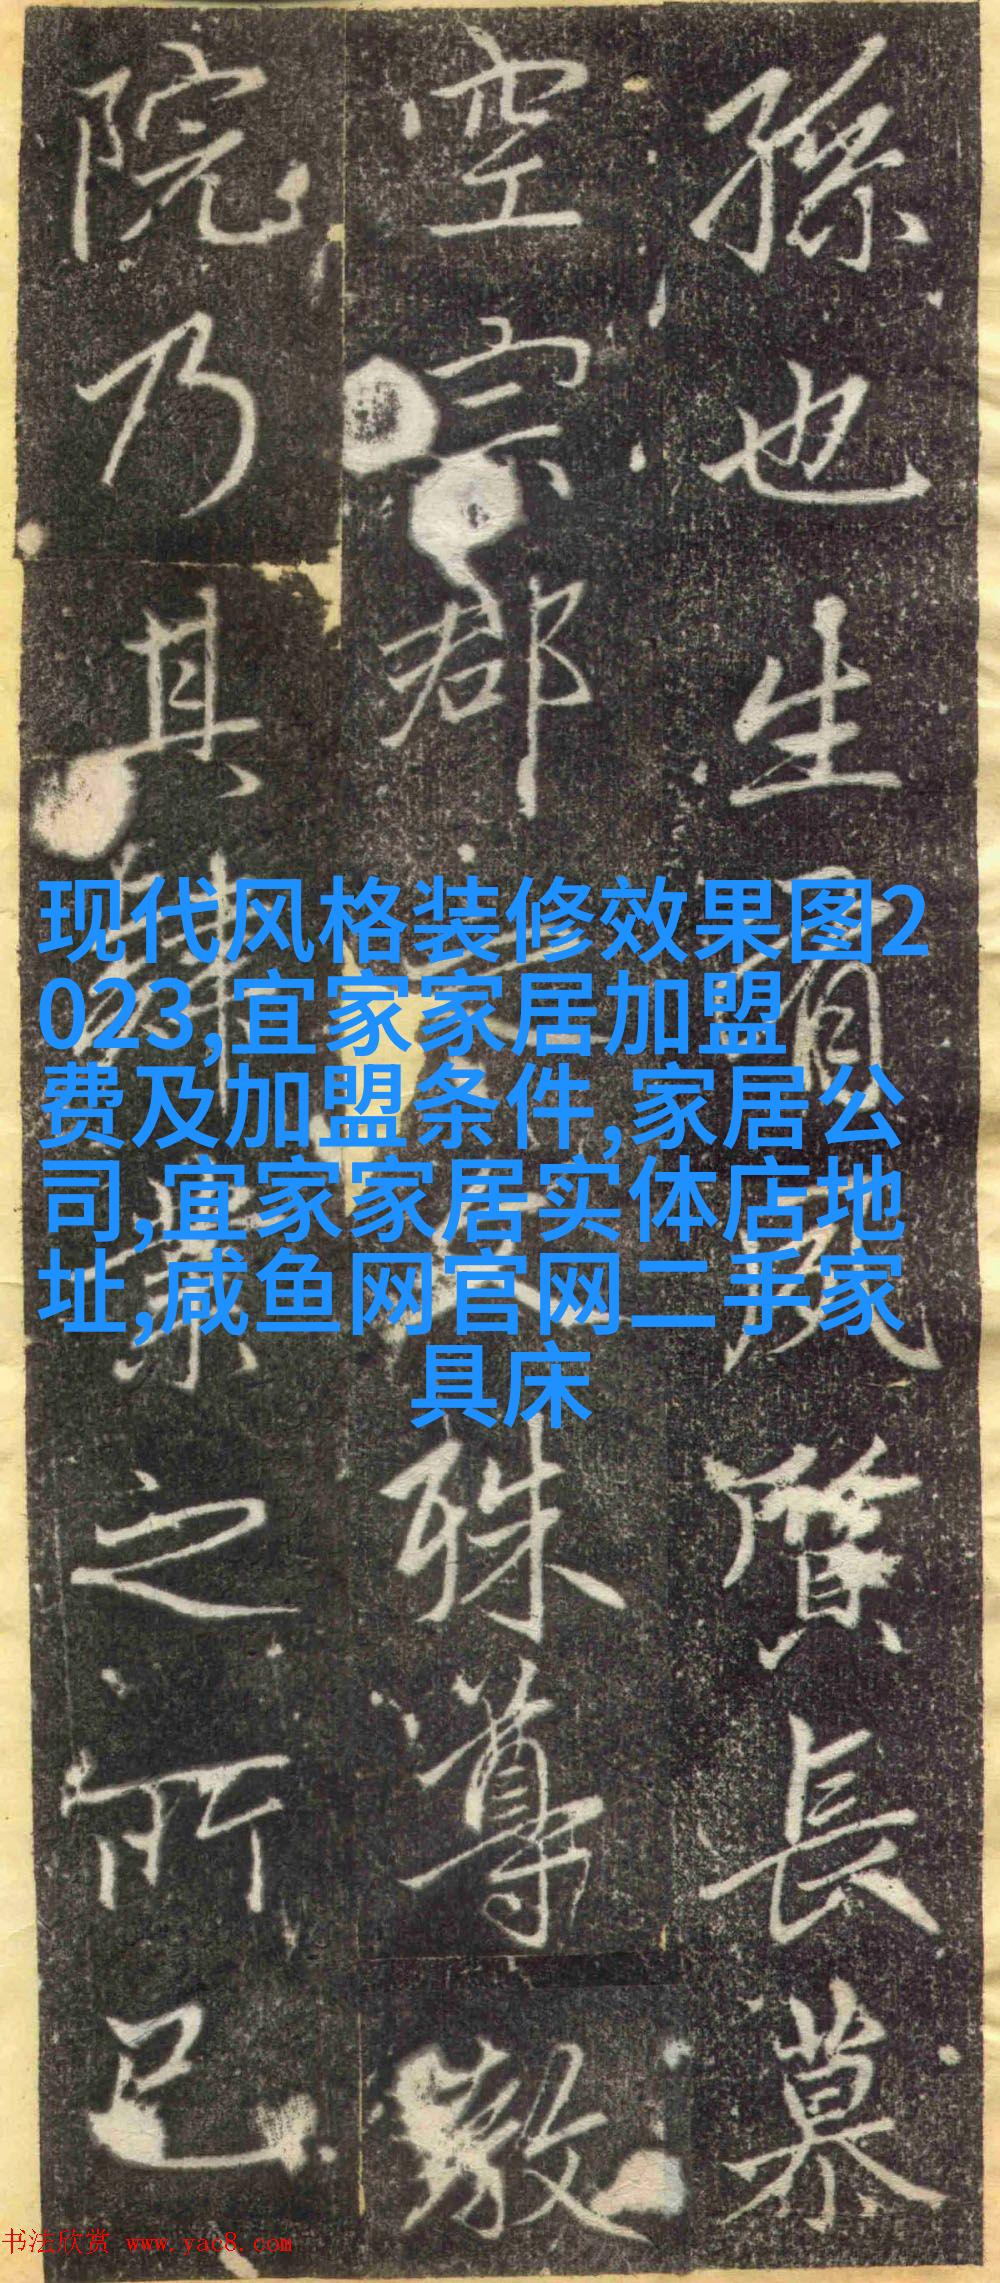 孫也生有質長慕
空宗郡殊尊
院乃其肄業之所已
现代风格装修效果图2
023,宜家家居加盟
费及加盟条件,家居公
司,宜家家居实体店地
址,咸鱼网官网二手家
具床
书法欣赏 www.yac8.com